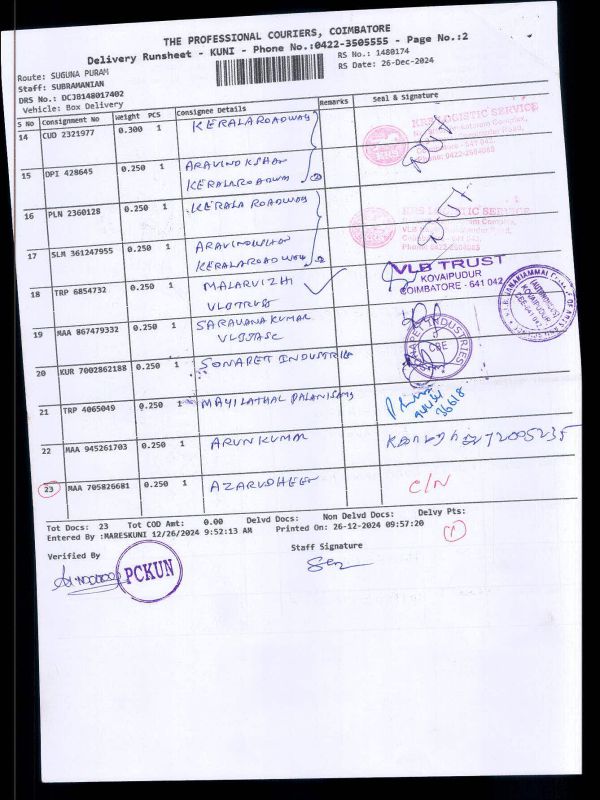 THE PROFESSIONAL COURIERS, COIMBATORE
Delivery Runsheet - KUNI - Phone No.:0422-3505555 - Page No.:2
Route: SUGUNA PURAM
RS No.: 1480174
Staff: SUBRAMANIAN
RS Date: 26-Dec-2024
DRS No.: DCJB148017402
Vehicle: Box Delivery
S No Consignment No Weight PCS Consignee Details Remarks Seal & Signature
14 CUD 2321977 0.300 1 KERALA ROADWAY
KRS LOGISTIC SERVICE
15 DPI 428645 0.250 1 ARAVIND KSHAN
KERALA ROADWAY
16 PLN 2360128 0.250 1 KERALA ROADWAY
KRS LOGISTIC SERVICE
17 SLM 361247955 0.250 1
KERALA ROADWAY
18 TRP 6854732 0.250 1 MALARVIZHI
VLB TRUST
VLB TRUST
KOVAIPUDUR
COIMBATORE - 641 042
19 MAA 867479332 0.250 1 SARAVANA KUMAR
VLBJASC
20 KUR 7002862188 0.250 1 SONAPET INDUSTRIES
21 TRP 4065049 0.250 1 MAYILATHAL PALANISAMY
22 MAA 945261703 0.250 1 ARUN KUMAR
23 MAA 705826681 0.250 1 AZARUDHEEN C/N
Tot Docs: 23 Tot COD Amt: 0.00 Delvd Docs: Non Delvd Docs: Delvy Pts:
Entered By :MARESKUNI 12/26/2024 9:52:13 AM Printed On: 26-12-2024 09:57:20
Verified By
Staff Signature
PCKUN